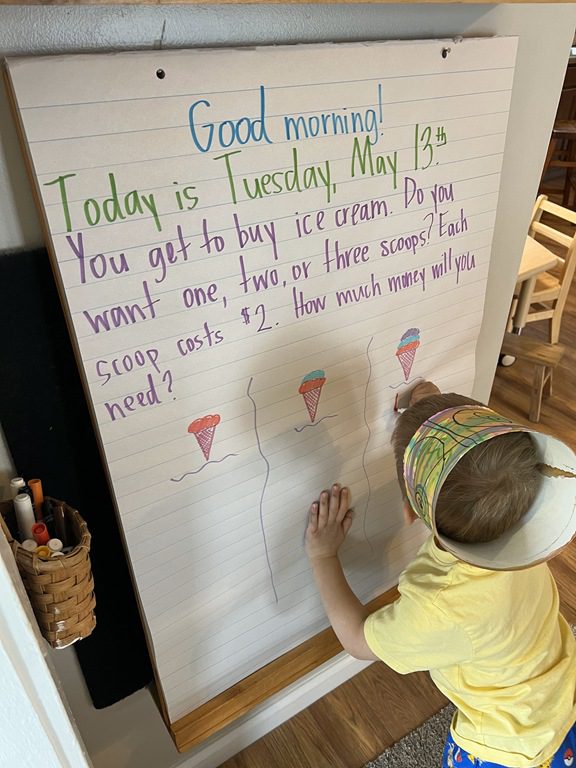 Good morning!
Today is Tuesday, May 13th.
You get to buy ice cream. Do you
want one, two, or three scoops? Each
scoop costs $2. How much money will you
need?